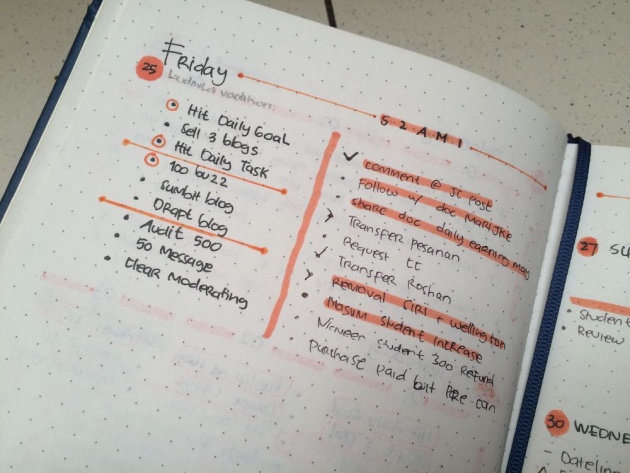 Friday
25
Ludmila vocation
Hit Daily Goal
Sell 3 blogs
Hit Daily Task
100 buzz
Sumbit blog
Draft blog
Audit 500
50 Message
Clear Moderating
5 2 A M I
comment @ JC Post
Follow w/ doc Marijke
share doc daily earning
Transfer Pesanan
Request CC
Transfer Roshan
Removal Fiki + wellington
Masum Student Increase
Student 300 Refund
Purchase paid but can
27
SU
Student
Review
30 WEDNE
- Dateline